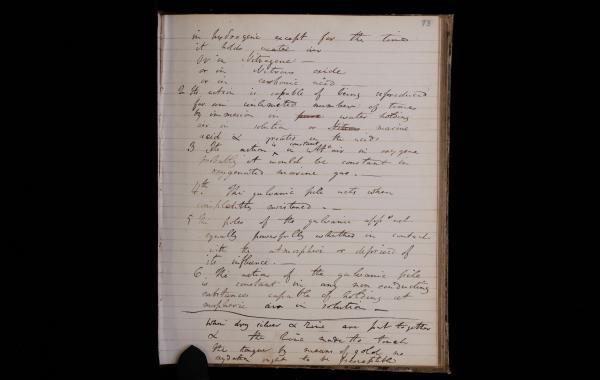 73
in hydrogene except for the time
it holds water in
Or in Nitrogene —
or in Nitrous oxide
or in carbonic acid —
2 Its action is capable of being reproduced
for an unlimited number of times
by immersion in pure water holding
air in solution or Nitrous marine
acid & in the acids
3 Its action is constant in atm air in oxygene
probably it would be constant in
oxygenated marine gas. —
4th. The galvanic pile acts when
completely moistened. —
5 The poles of the galvanic app act
equally powerfully whether in contact
with the atmosphere or deprived of
its influence. —
6. The action of the galvanic pile
is constant in any non conducting
substances capable of holding at
mospheric air in solution —
When dry silver & Zinc are put together
& the Zinc made to touch
the tongue by means of gold no
ought to be perceptible